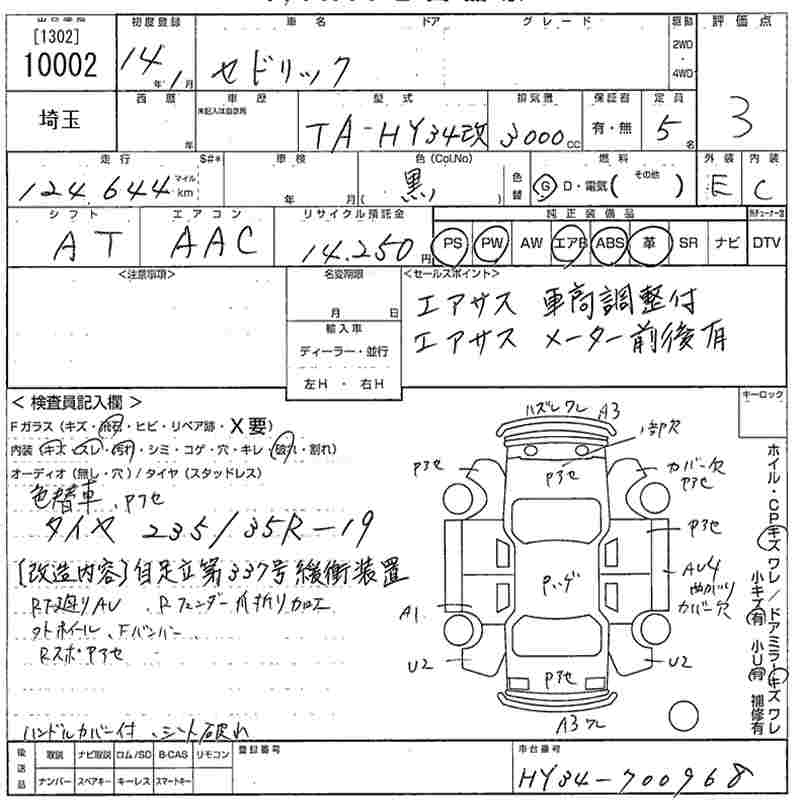 初度登録 車名 ドア グレード 駆動 評価点
[1302]
10002
14年 1月
セドリック
2WD
・
4WD
3
埼玉
西暦 車歴 型式 排気量 保証書 定員
未記入は自家用
年
TA-HY34改
3000cc
有・無
5名
走行 $#* 車検 色(Col.No) 燃料 外装 内装
124,644 マイル km
年 月
黒 ( )
色替
G D・電気( その他 )
E C
シフト エアコン リサイクル預託金 純正装備品
AT AAC 14,250円
PS PW AW エアB ABS 革 SR ナビ DTV
<注意事項> 名変期限 <セールスポイント>
月 日
エアサス 車高調整付
エアサス メーター前後有
輸入車
ディーラー・並行
左H・右H
<検査員記入欄> キーロック
Fガラス(キズ・飛石・ヒビ・リペア跡・X要)
内装(キズ・スレ・汚れ・シミ・コゲ・穴・キレ・破れ・割れ)
オーディオ(無し・穴)/タイヤ(スタッドレス)
色替車、Pアセ
タイヤ 235/35R-19
[改造内容]自足立第337号緩衝装置
R下廻りAU Rフェンダー爪折り加工
外ホイール、Fバンパー
Rスポ・Pアセ
ハンドルカバー付、シート破れ
ハズレ ワレ A3
1部欠
Pアセ Pアセ カバー欠
Pアセ
Pアセ
Pハゲ
AU4
カバー欠
A1
U2 Pアセ U2
A3 ワレ
ホイル・CPキズ ワレ/ドアミラーキズ ワレ
小キズ有 小U有 補修有
後送品
取説 ナビ取説 ロム/SD B-CAS リモコン
ナンバー スペアキー キーレス スマートキー
登録番号 車台番号
HY34-700968